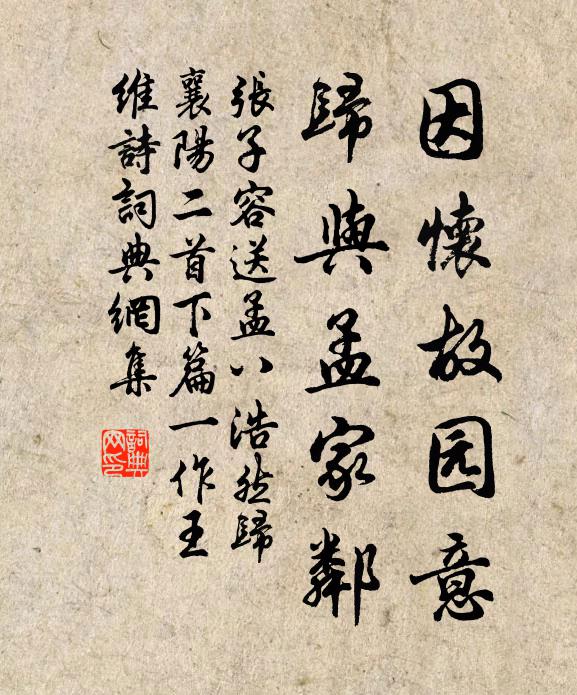 因懷故园意
歸與孟家鄰
張子容送孟八浩然歸
襄陽二首下篇一作王
維詩詞典網集
詞典
网印